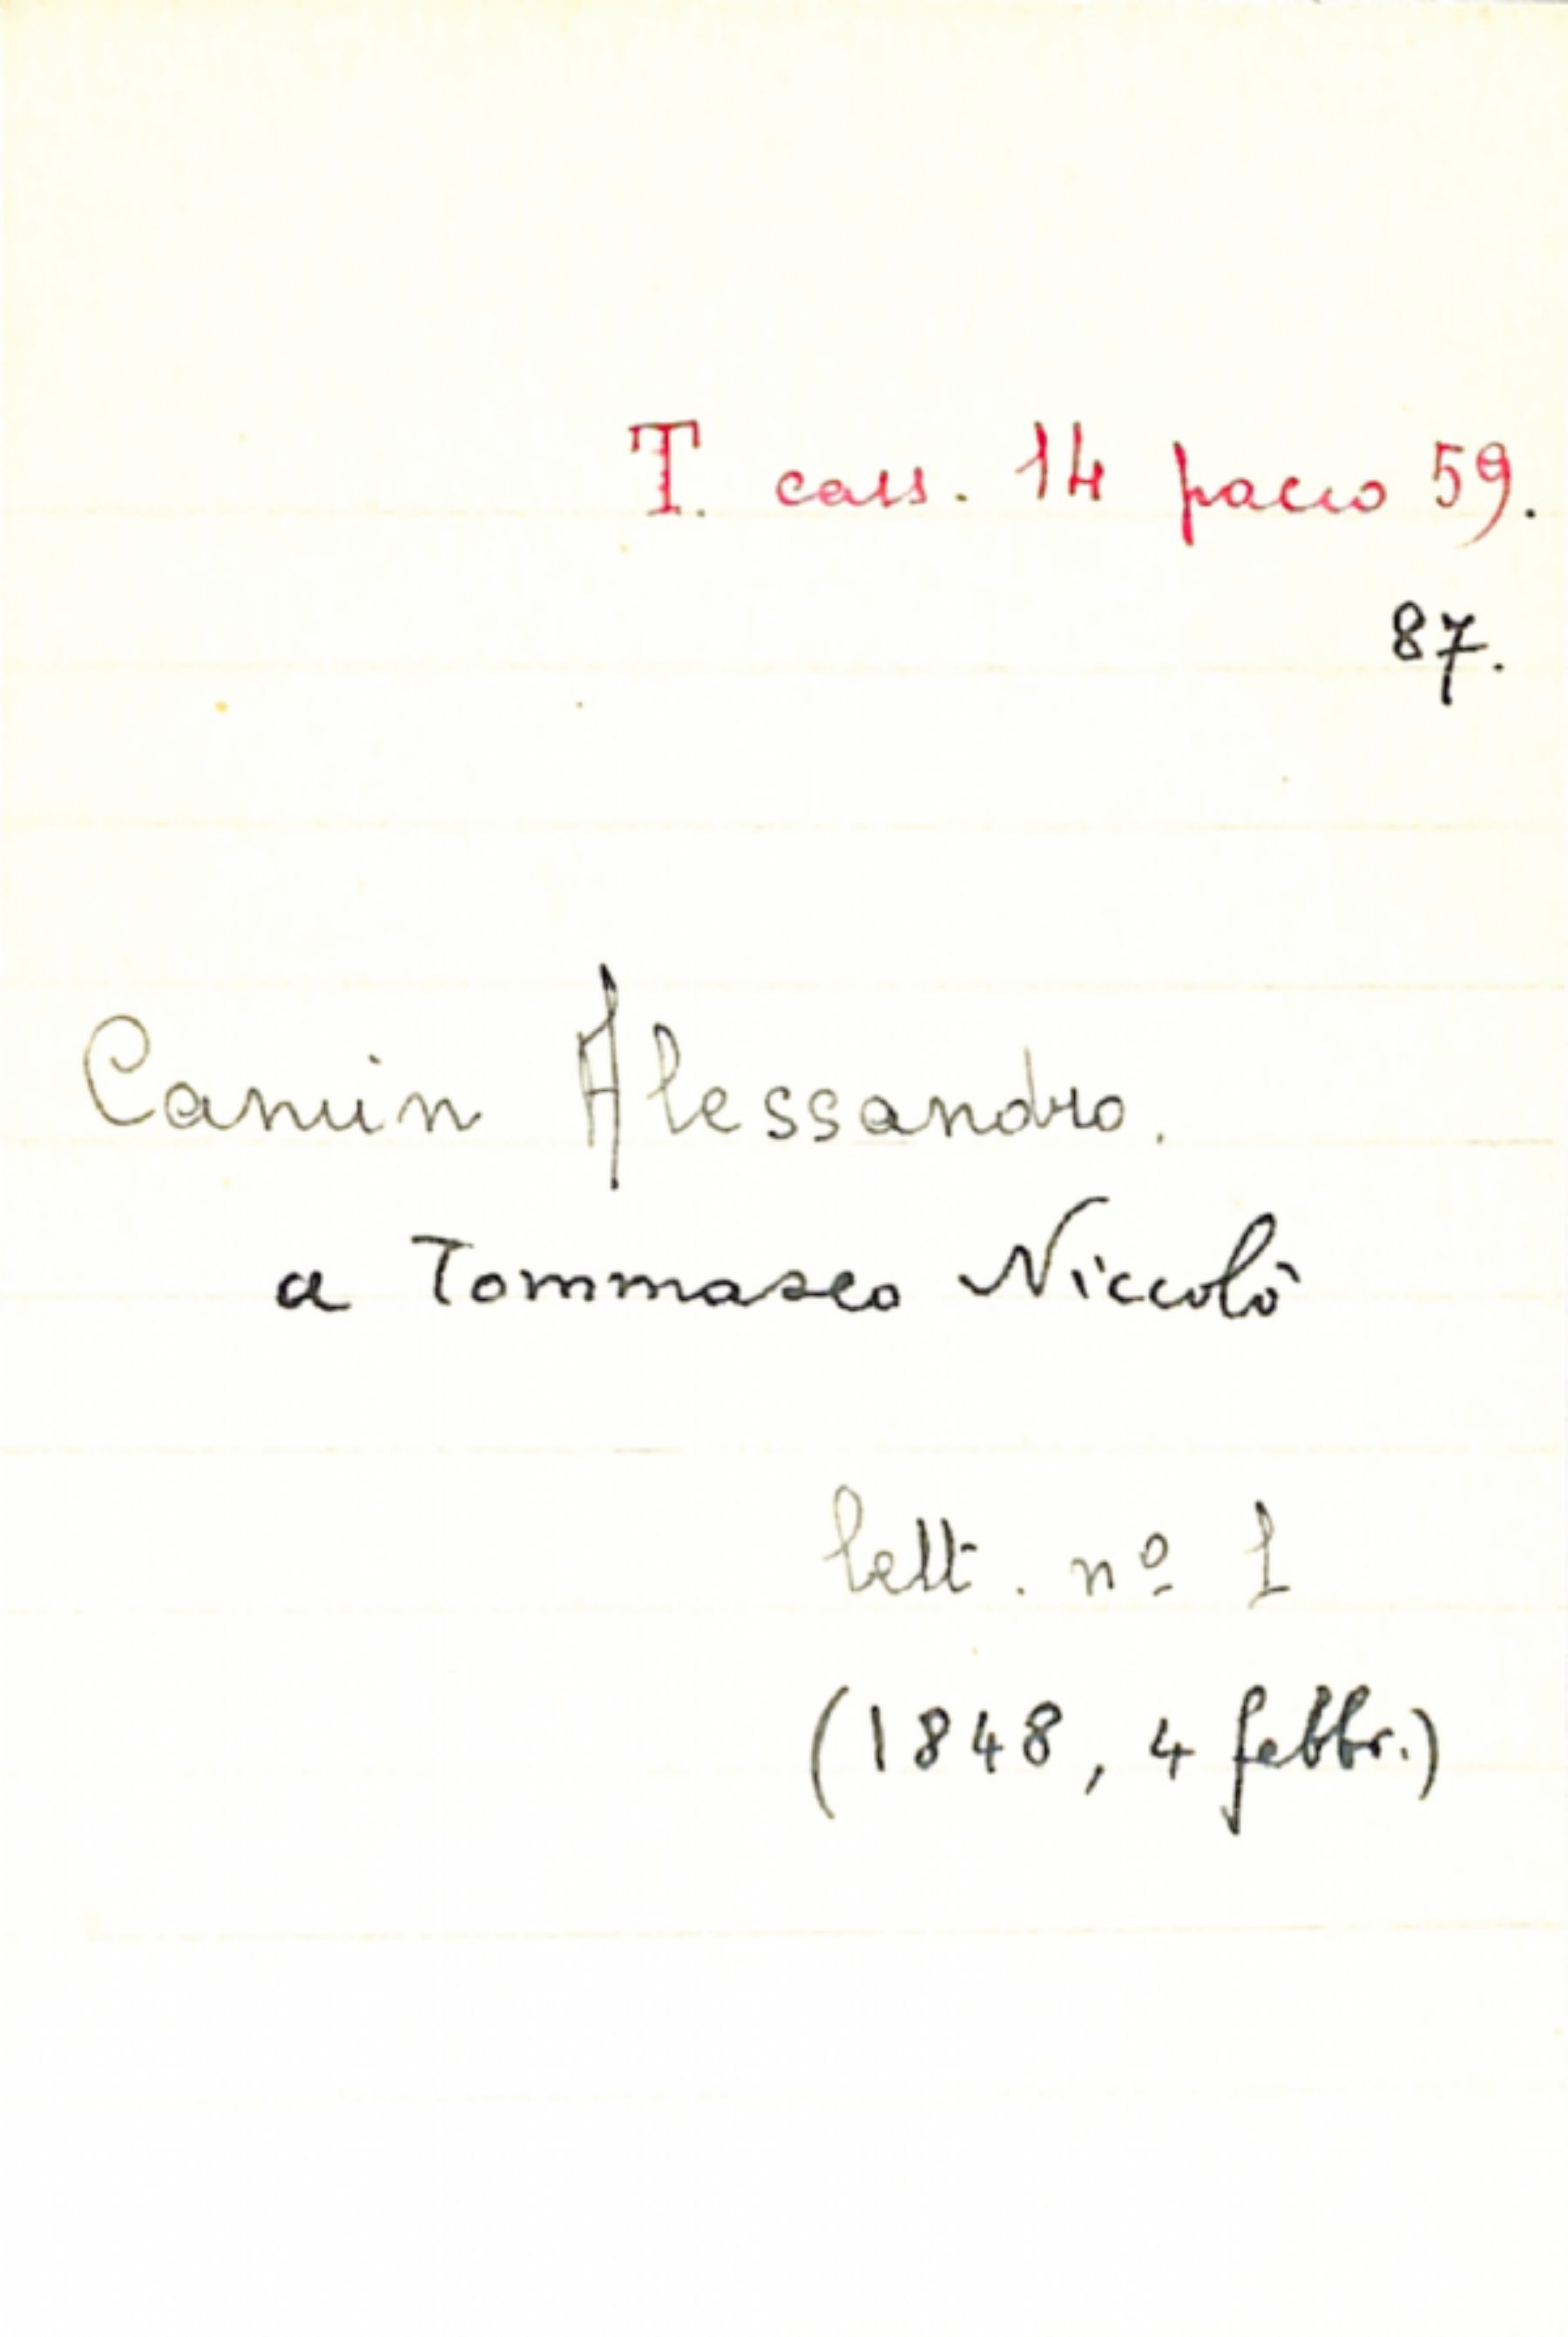 T. cass. 14 pacco 59.
87.
Canuin Alessandro.
a Tommaseo Niccolò
lett. nº 1
(1848, 4 febbr.)